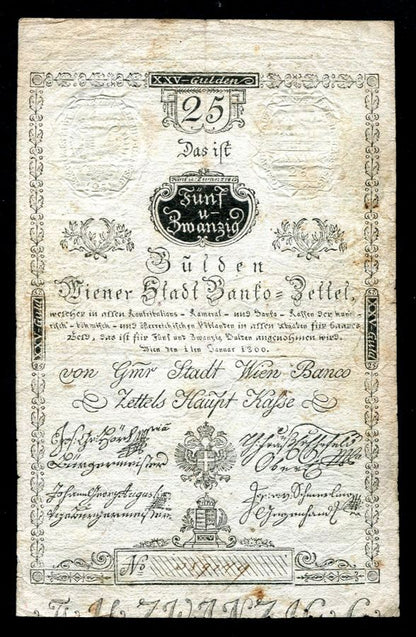 XXV-Gulden
25
Das ist
Fünf u. Zwanzig
Fünf
u-
Zwanzig
Gulden
Wiener Stadt Banko-Zettel,
welcher in allen Kontributions- Kameral- und Banko-Kassen der hun-
risch-böhmisch- und österreichischen Erblanden in allen Abgaben für baares
Geld, das ist für Fünf und Zwanzig Gulden angenohmen wird.
Wien den 1ten Januar 1800.
XXV-Guld
XXV-Guld
von Gmr Stadt Wien Banco
Zettels Haupt Kasse
Bürgermeister
Johann Georg August
Vizebürgermeister
No